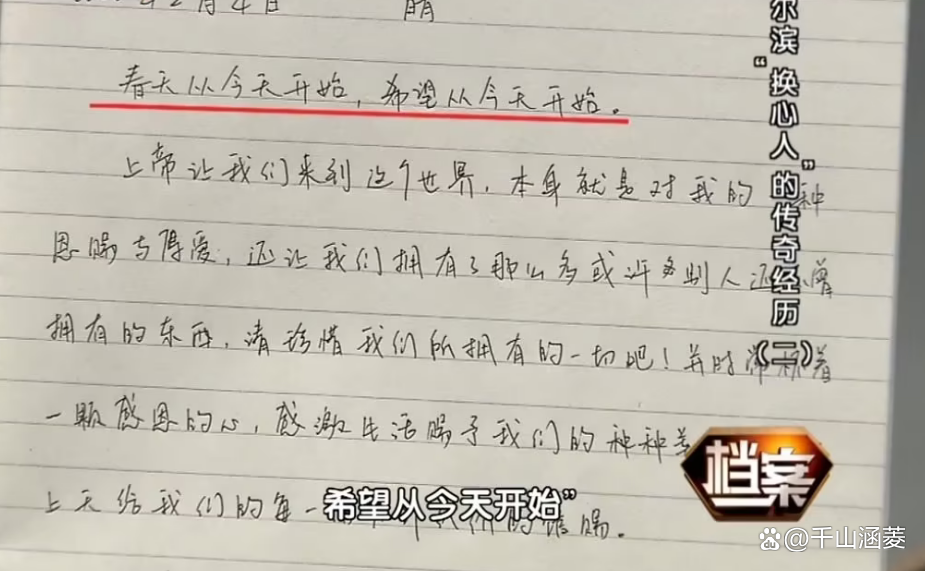 年2月4日 晴
春天从今天开始，希望从今天开始。
上帝让我们来到这个世界，本身就是对我的 种
恩赐与厚爱，还让我们拥有了那么多或许多别人还 曾
拥有的东西，请珍惜我们所拥有的一切吧！并时常 着
一颗感恩的心，感激生活赐予我们的种种
上天给我们的每一 赐。
希望从今天开始”
尔滨“换心人”的传奇经历（二）
档案
千山涵菱